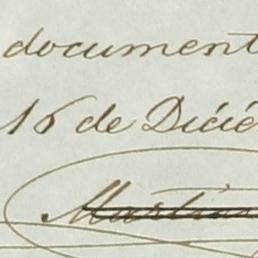 document
16 de Dicié
Martin